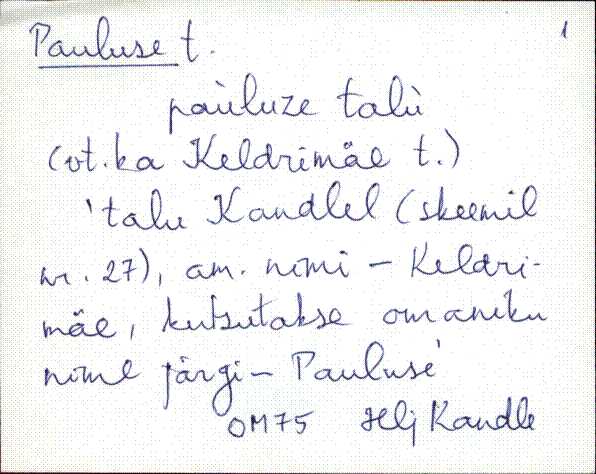 Pauluse t. 1
pàuluze talù
(vt. ka Keldrimäe t.)
'talu Kandlel (skeemil
nr. 27), am. nimi - Keldri-
mäe, kutsutakse omaniku
nime järgi - Pauluse'
OM75 Helj Kandle